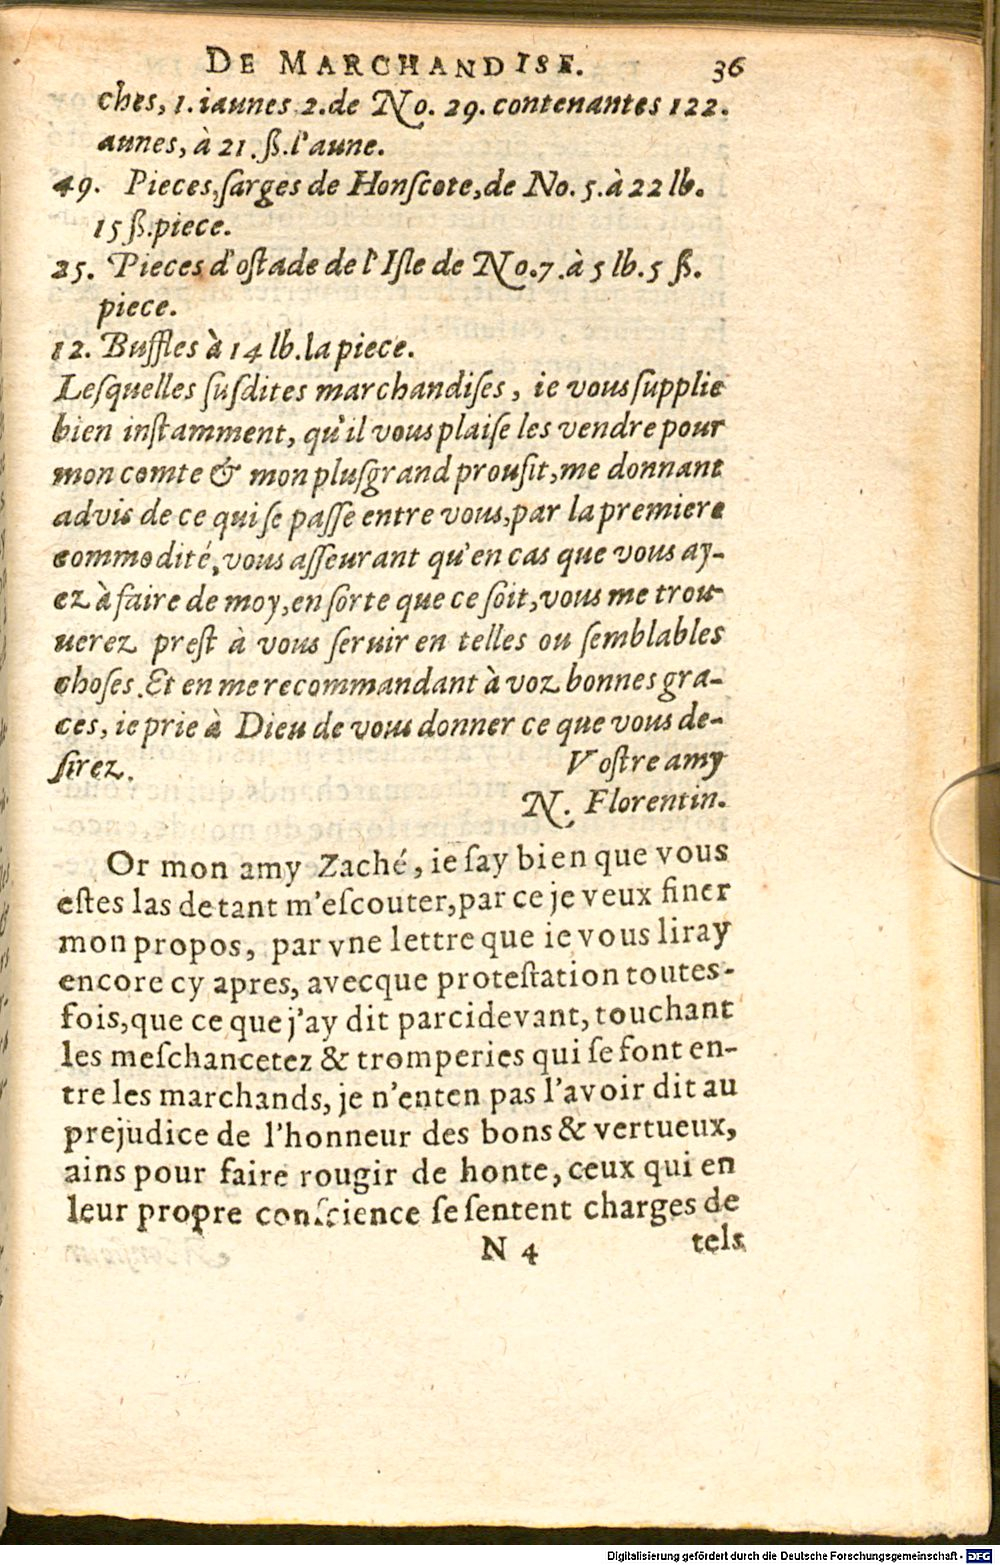 DE MARCHANDISE. 36
ches, 1. iaunes 2. de No. 29. contenantes 122.
aunes, à 21. ß. l'aune.
49. Pieces, ſarges de Honſcote, de No. 5. à 22 lb.
15 ß. piece.
25. Pieces d'oſtade de l'Iſle de No. 7. à 5 lb. 5 ß.
piece.
12. Buffles à 14 lb. la piece.
Leſquelles ſuſdites marchandiſes, ie vous ſupplie
bien inſtamment, qu'il vous plaiſe les vendre pour
mon comte & mon plus grand proufit, me donnant
advis de ce qui ſe paſſe entre vous, par la premiere
commodité, vous aſſeurant qu'en cas que vous ay-
ez à faire de moy, en ſorte que ce ſoit, vous me trou-
uerez preſt à vous ſeruir en telles ou ſemblables
choſes. Et en me recommandant à voz bonnes gra-
ces, ie prie à Dieu de vous donner ce que vous de-
ſirez. Voſtre amy
N. Florentin.
Or mon amy Zaché, ie ſay bien que vous
eſtes las de tant m'eſcouter, par ce je veux finer
mon propos, par vne lettre que ie vous liray
encore cy apres, avecque proteſtation toutes-
fois, que ce que j'ay dit parcidevant, touchant
les meſchancetez & tromperies qui ſe font en-
tre les marchands, je n'enten pas l'avoir dit au
prejudice de l'honneur des bons & vertueux,
ains pour faire rougir de honte, ceux qui en
leur propre conſcience ſe ſentent charges de
N 4 tels
Digitalisierung gefördert durch die Deutsche Forschungsgemeinschaft - DFG